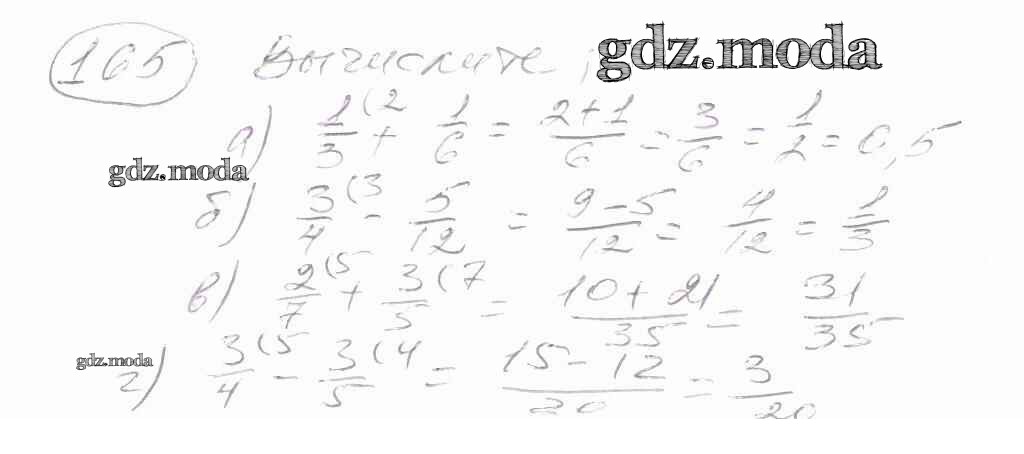 165 Вычислите: gdz.moda
а) 1/3 (2 + 1/6 = 2+1/6 = 3/6 = 1/2 = 0,5
gdz.moda
б) 3/4 (3 - 5/12 = 9-5/12 = 4/12 = 1/3
в) 2/7 (5 + 3/5 (7 = 10+21/35 = 31/35
gdz.moda
г) 3/4 (5 - 3/5 (4 = 15-12/20 = 3/20